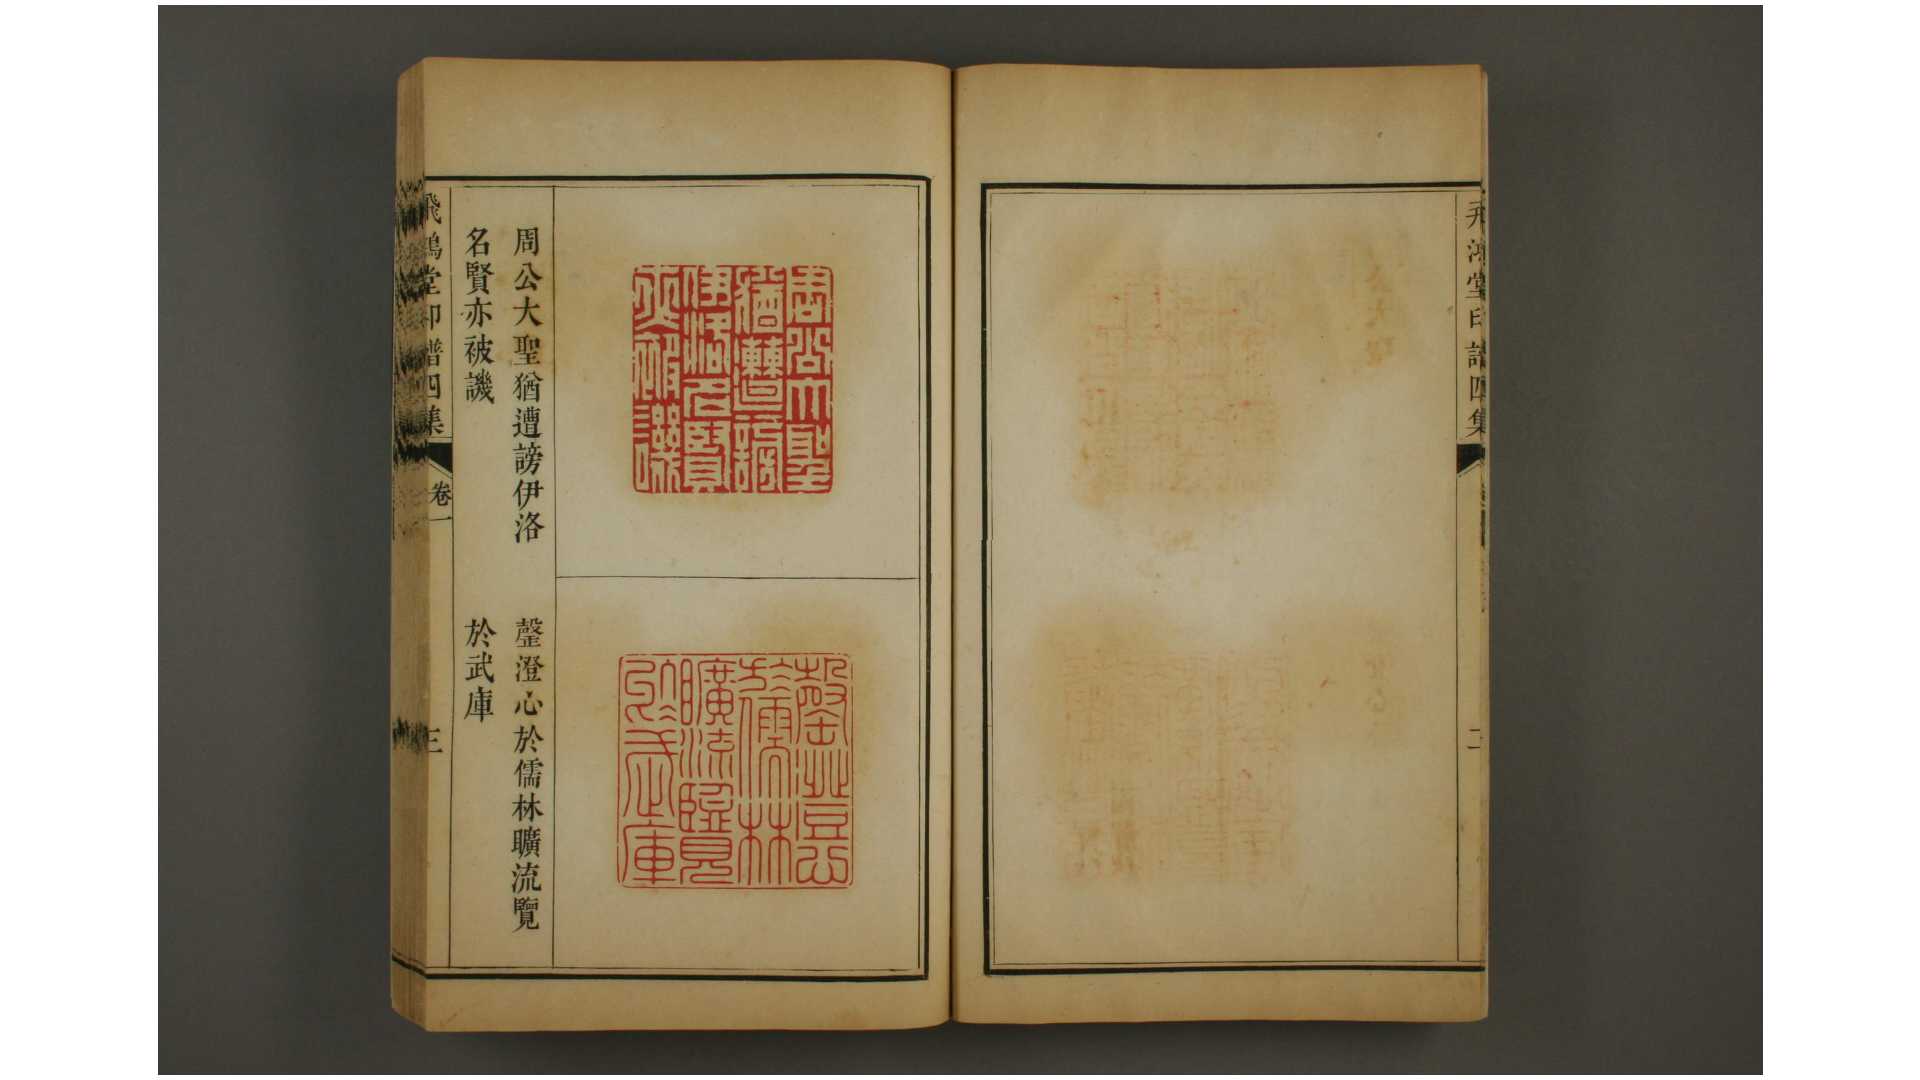 飛鴻堂印譜四集
周公大聖
猶遭謗
伊洛名賢
亦被譏
周公大聖猶遭謗伊洛
名賢亦被譏
罄澄心
於儒林
曠流覽
於武庫
罄澄心於儒林曠流覽
於武庫
飛鴻堂印譜四集
卷一
三